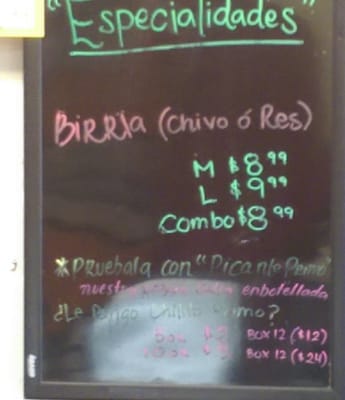 "Especialidades"
BiRRia (Chivo ó Res)
M $8.99
L $9.99
Combo $8.99
*PRuebala con "Picante Primo"
nuestra enbotellada
¿Le Pongo Chilito Primo?
BOX 12 ($12)
BOX 12 ($24)